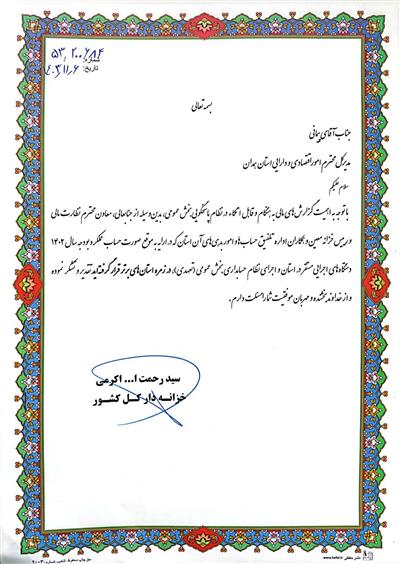 شماره: ۵۳٫۲۰۰۶۸۴
تاریخ: ۴۰۳٫۱۱٫۶
بسمه تعالی
جناب آقای پیمانی
مدیرکل محترم امور اقتصادی و دارایی استان همدان
سلام علیکم
با توجه به اهمیت گزارش‌های مالی به هنگام و قابل اتکاء در نظام پاسخگویی بخش عمومی، بدین وسیله از جنابعالی، معاون محترم نظارت مالی
و رییس خزانه معین و همکاران اداره تلفیق حساب‌ها و امور بدهی‌های آن استان که در ارایه به موقع صورت حساب عملکرد بودجه سال ۱۴۰۲
دستگاه‌های اجرایی مستقر در استان و اجرای نظام حسابداری بخش عمومی (تعهدی)، در زمره استان‌های برتر قرار گرفته‌اید تقدیر و تشکر نموده
و از خداوند بخشنده و مهربان موفقیت شما را مسئلت دارم.
سید رحمت ا... اکرمی
خزانه دار کل کشور
نشر حافظی www.hafizi.ir
حق چاپ محفوظ. تذهیب شماره: ۲۰۰۳